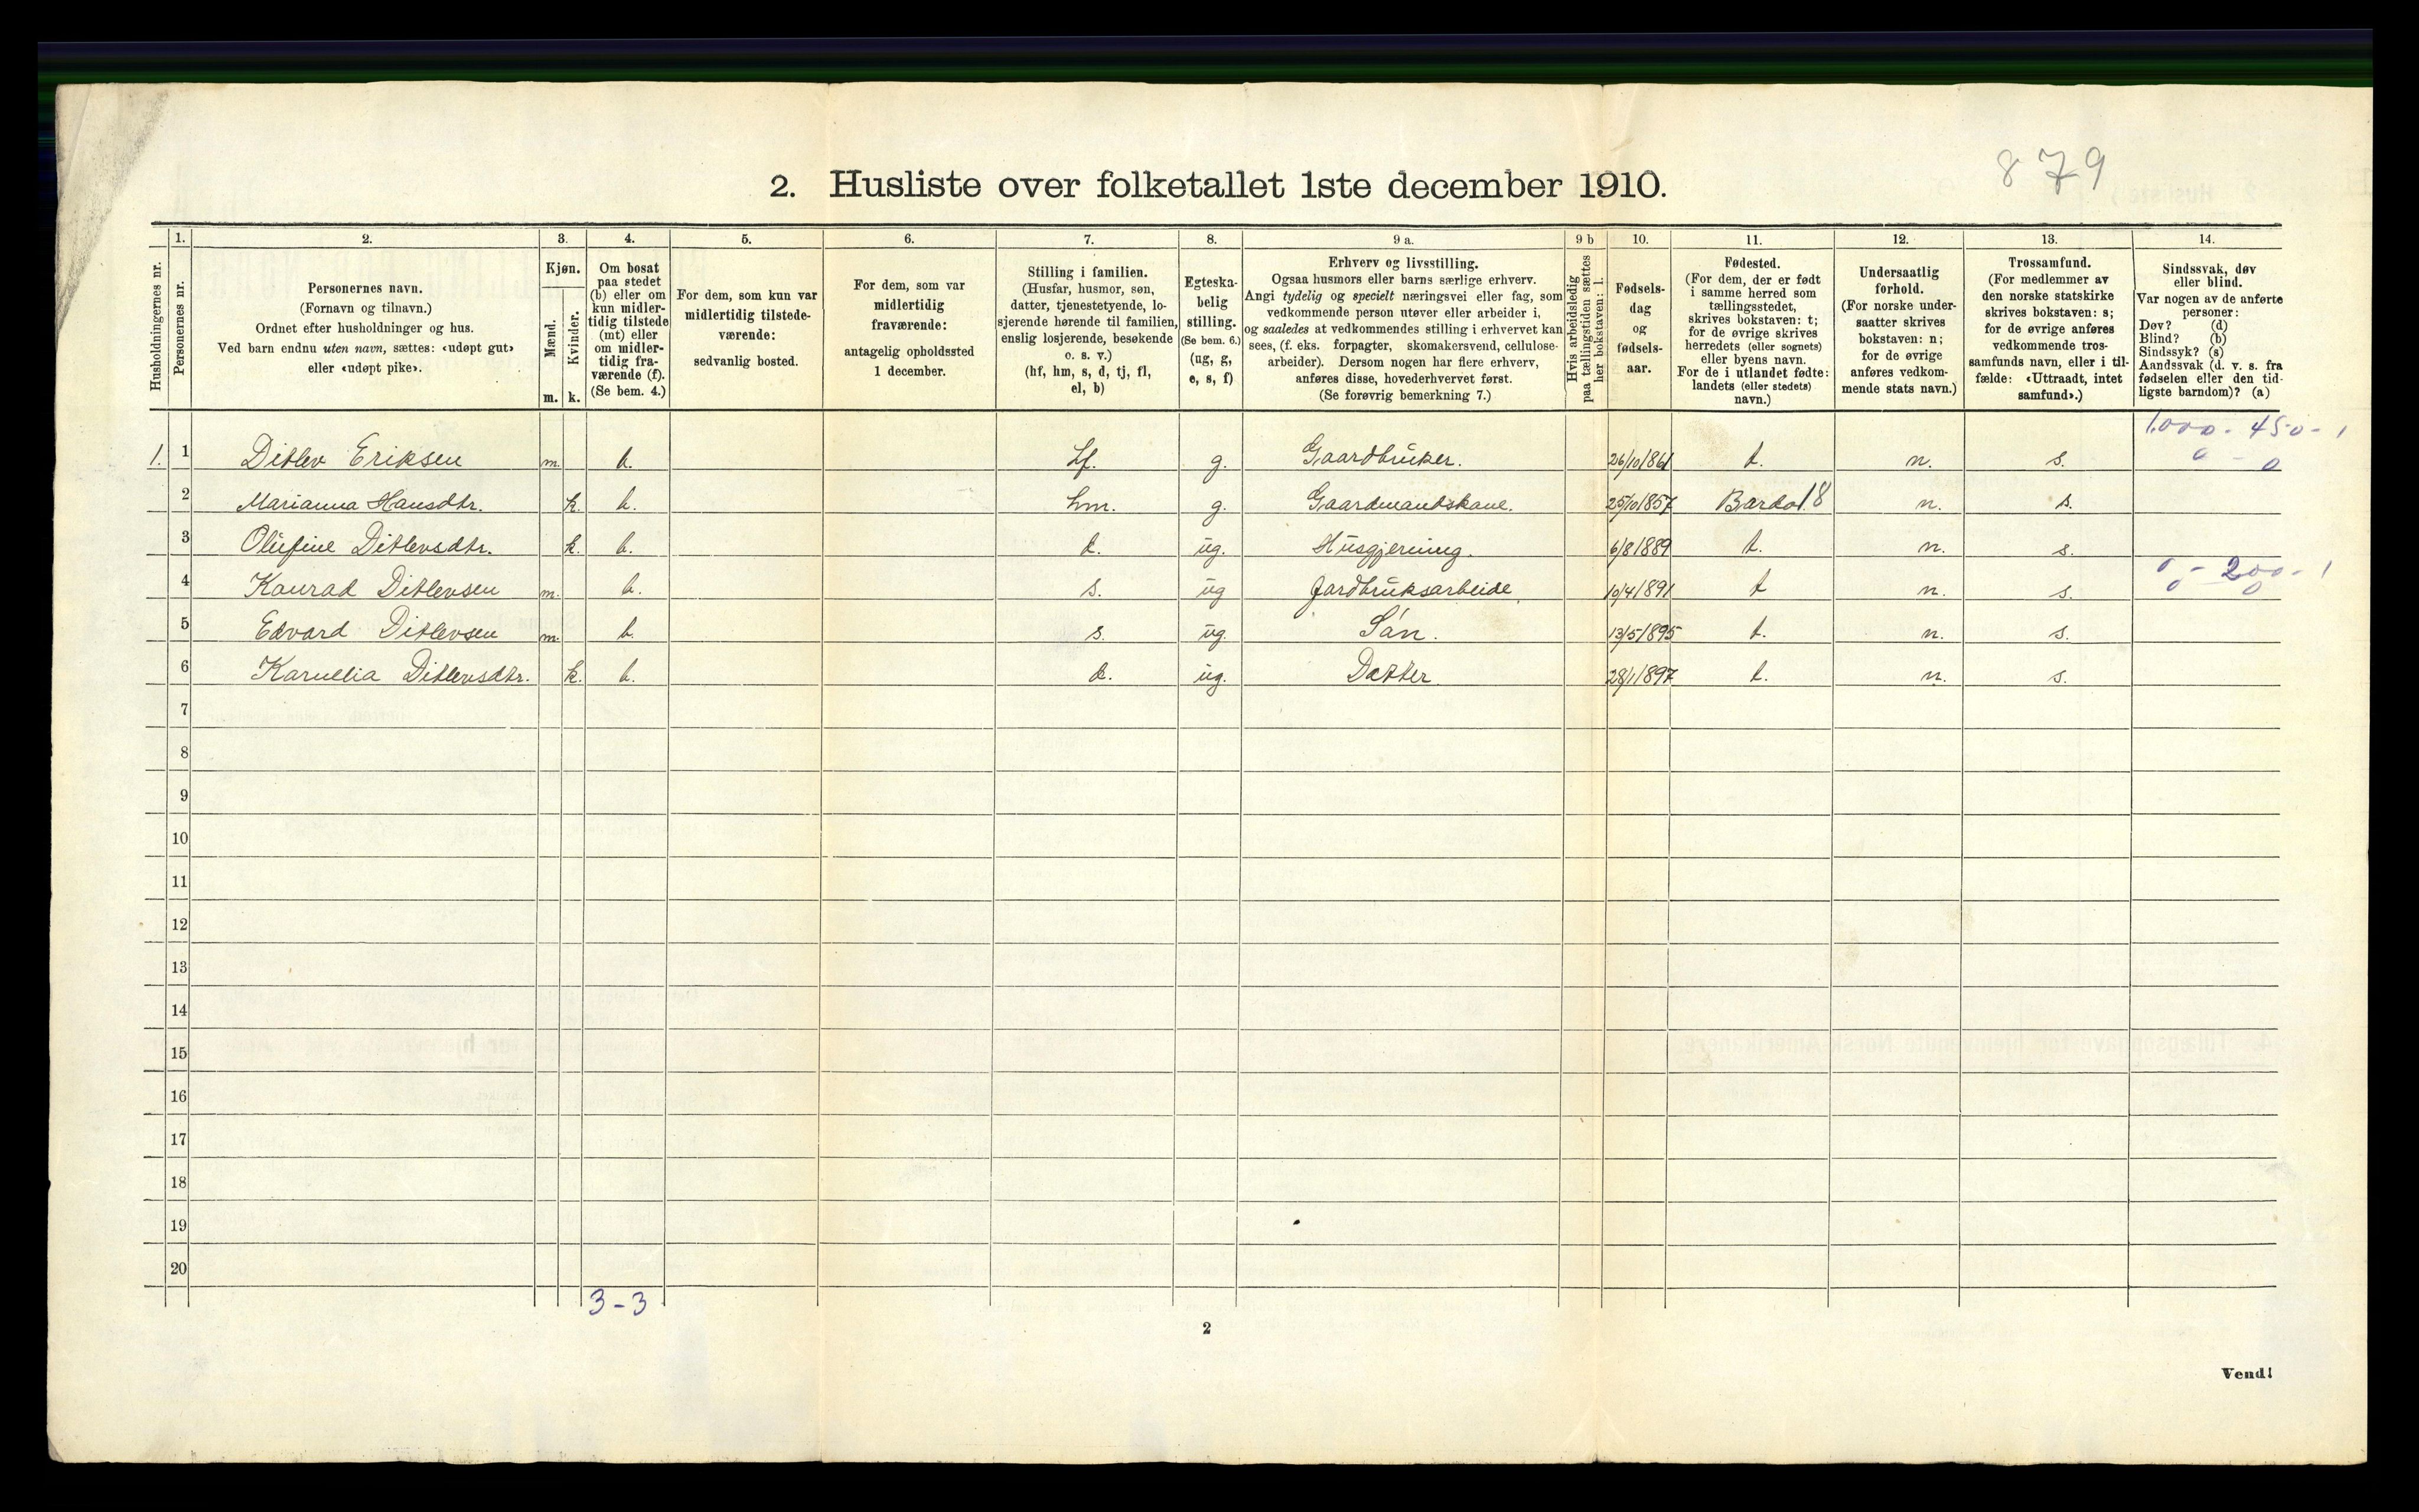 879
2. Husliste over folketallet 1ste december 1910.
1. 2. 3. 4. 5. 6. 7. 8. 9 a. 9 b 10. 11. 12. 13. 14.
Husholdningernes nr.
Personernes nr.
Personernes navn.
(Fornavn og tilnavn.)
Ordnet efter husholdninger og hus.
Ved barn endnu uten navn, sættes: «udøpt gut»
eller «udøpt pike».
Kjøn.
Mænd.
Kvinder.
m. k.
Om bosat
paa stedet
(b) eller om
kun midler-
tidig tilstede
(mt) eller
om midler-
tidig fra-
værende (f).
(Se bem. 4.)
For dem, som kun var
midlertidig tilstede-
værende:
sedvanlig bosted.
For dem, som var
midlertidig
fraværende:
antagelig opholdssted
1 december.
Stilling i familien.
(Husfar, husmor, søn,
datter, tjenestetyende, lo-
sjerende hørende til familien,
enslig losjerende, besøkende
o. s. v.)
(hf, hm, s, d, tj, fl,
el, b)
Egteska-
belig
stilling.
(Se bem. 6.)
(ug, g,
e, s, f)
Erhverv og livsstilling.
Ogsaa husmors eller barns særlige erhverv.
Angi tydelig og specielt næringsvei eller fag, som
vedkommende person utøver eller arbeider i,
og saaledes at vedkommendes stilling i erhvervet kan
sees, (f. eks. forpagter, skomakersvend, cellulose-
arbeider). Dersom nogen har flere erhverv,
anføres disse, hovederhvervet først.
(Se forøvrig bemerkning 7.)
Hvis arbeidsledig
paa tællingstiden sættes
her bokstaven: l.
Fødsels-
dag
og
fødsels-
aar.
Fødested.
(For dem, der er født
i samme herred som
tællingsstedet,
skrives bokstaven: t;
for de øvrige skrives
herredets (eller sognets)
eller byens navn.
For de i utlandet fødte:
landets (eller stedets)
navn.)
Undersaatlig
forhold.
(For norske under-
saatter skrives
bokstaven: n;
for de øvrige
anføres vedkom-
mende stats navn.)
Trossamfund.
(For medlemmer av
den norske statskirke
skrives bokstaven: s;
for de øvrige anføres
vedkommende tros-
samfunds navn, eller i til-
fælde: «Uttraadt, intet
samfund».)
Sindssvak, døv
eller blind.
Var nogen av de anførte
personer:
Døv? (d)
Blind? (b)
Sindssyk? (s)
Aandssvak (d. v. s. fra
fødselen eller den tid-
ligste barndom)? (a)
1.000 - 450 - 1
1. 1 Ditlev Eriksen m. b. hf. g. Gaardbruker. 26/10 1861 t. n. s. 0 - 0
2 Marianna Hansdtr. k. b. hm. g. Gaardmandskone. 25/10 1857 Bardo 18 n. s.
3 Olufine Ditlevsdtr. k. b. d. ug. Husgjerning. 6/8 1889 t. n. s.
0 - 200 - 1
4 Konrad Ditlevsen m. b. s. ug Jordbruksarbeide. 10/4 1891 t n. s. 0 0
5 Edvard Ditlevsen m. b. s. ug. Sön. 13/5 1895 t. n. s.
6 Karnelia Ditlevsdtr. k. b. d. ug. Datter. 28/1 1897 t. n. s.
7
8
9
10
11
12
13
14
15
16
17
18
19
20
3 - 3
2
Vend!